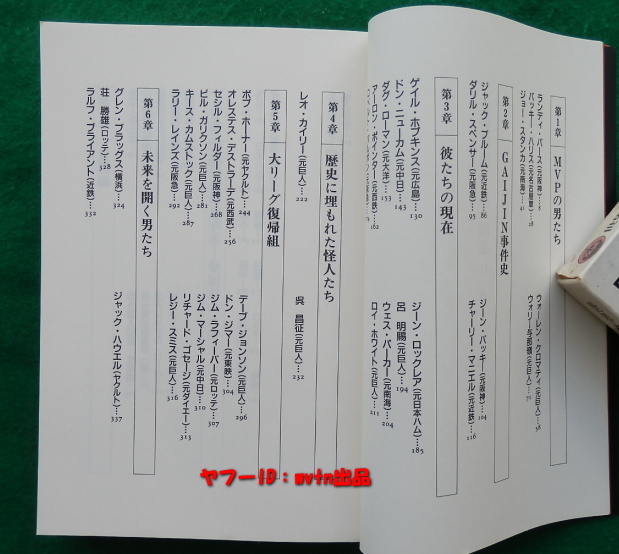 第1章 MVPの男たち
ランディ・バース(元阪神)…
バッキー・ハリス(元名古屋軍)…28
ジョー・スタンカ(元南海)…41
ウォーレン・クロマティ(元巨人)…58
ウォリー・与那嶺(元巨人)…71
第2章 GAIJIN事件史
ジャック・ブルーム(元近鉄)…86
ダリル・スペンサー(元阪急)…95
ジーン・バッキー(元阪神)…104
チャーリー・マニエル(元近鉄)…116
第3章 彼たちの現在
ゲイル・ホプキンス(元広島)…130
ドン・ニューカム(元中日)…143
ダグ・ローマン(元大洋)…153
アーロン・ポインター(元西鉄)…162
ジーン・ロックレア(元日本ハム)…185
呂 明賜(元巨人)…194
ウェス・パーカー(元南海)…204
ロイ・ホワイト(元巨人)…211
第4章 歴史に埋もれた怪人たち
レオ・カイリー(元巨人)…222
呉 昌征(元巨人)…232
第5章 大リーグ復帰組
ボブ・ホーナー(元ヤクルト)…244
オレステス・デストラーデ(元西武)…256
セシル・フィルダー(元阪神)…268
ビル・ガリクソン(元巨人)…281
キース・カムストック(元巨人)…287
ラリー・レインズ(元阪急)…292
デーブ・ジョンソン(元巨人)…296
ドン・ジマー(元東映)…304
ジム・ラフィーバー(元ロッテ)…307
ジム・マーシャル(元中日)…310
リチャード・ゴセージ(元ダイエー)…313
レジー・スミス(元巨人)…316
第6章 未来を開く男たち
グレン・ブラッグス(横浜)…324
荘 勝雄(ロッテ)…328
ラルフ・ブライアント(近鉄)…332
ジャック・ハウエル(ヤクルト)…337
ヤフーID:mvtn出品